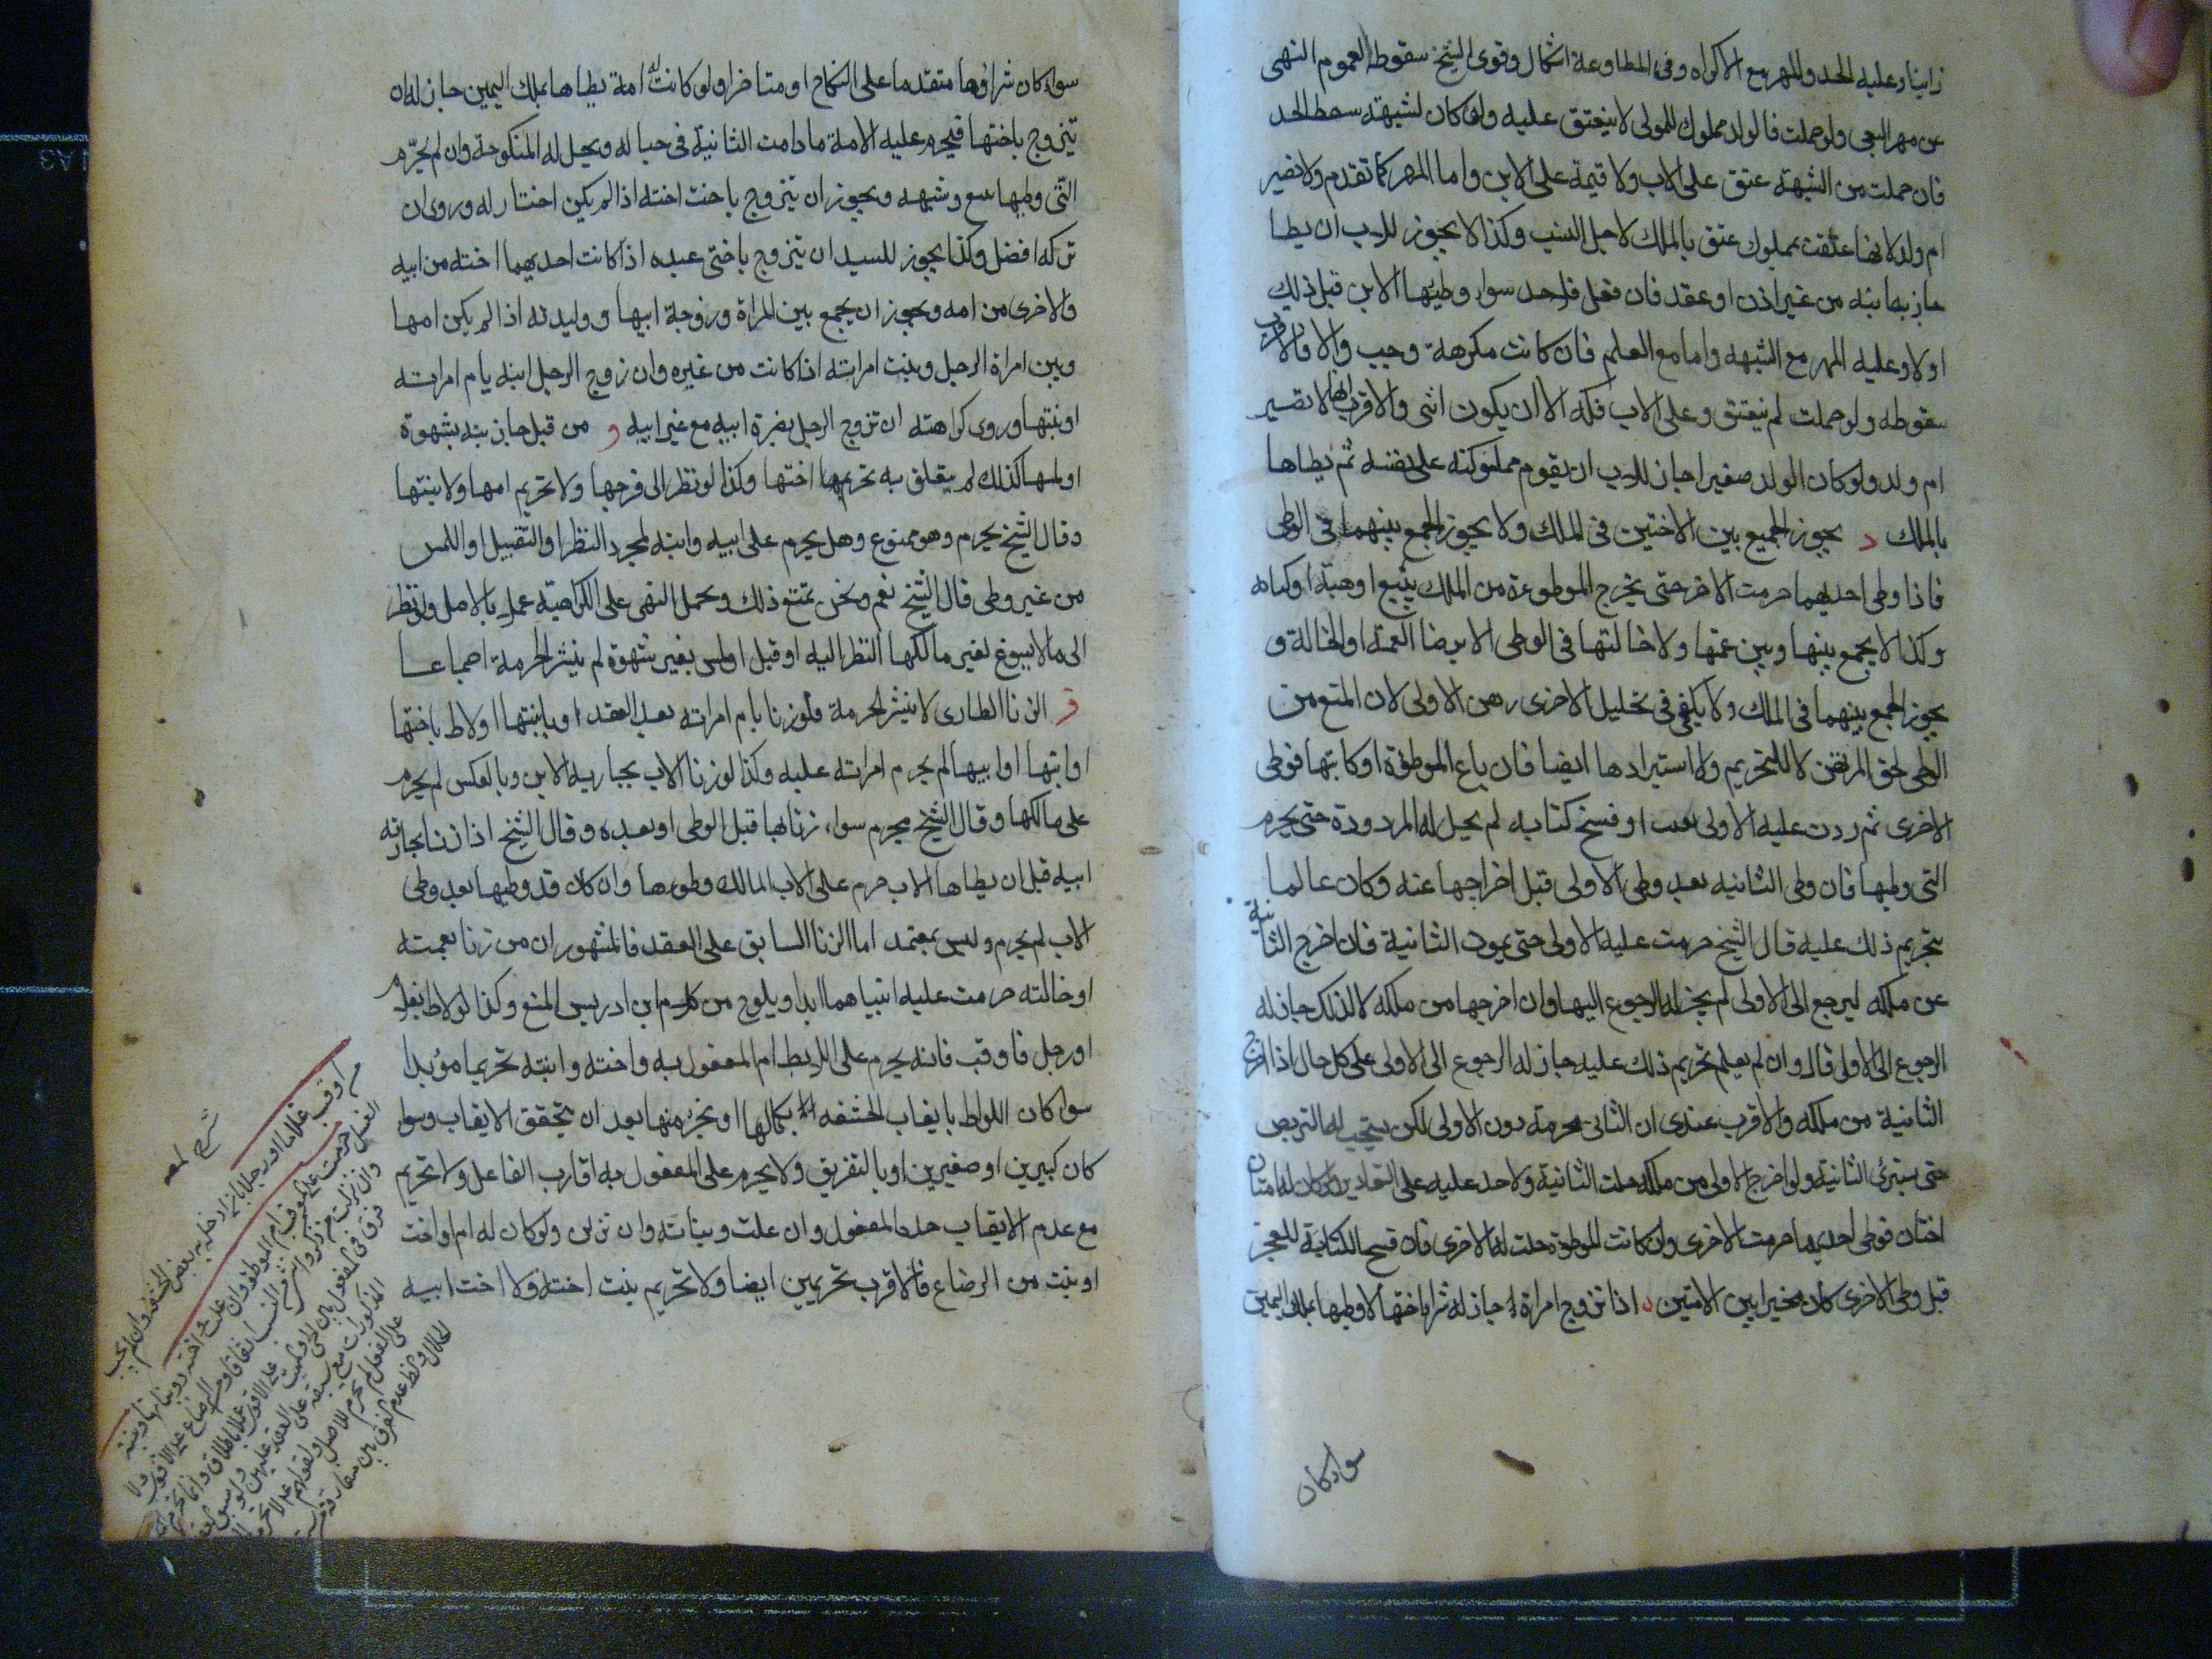 زانيا وعليه الحد والمهر مع الاكراه وفى المطاوعة اشكال وقوى الشيخ سقوطه لعموم النهى
عن مهر البغى ولو حملت فالولد مملوك للمولى لا ينعتق عليه ولو كان لشبهة سقط الحد
فان حملت من الشبهة عتق على الاب ولا قيمة على الابن واما المهر كما تقدم ولا تصير
ام ولد لانها علقت بمملوك عتق بالملك لاجل النسب وكذا لا يجوز للاب ان يطا
جارية ابنه من غير اذن او عقد فان فعل فلا حد سواء وطيها الابن قبل ذلك
او لا وعليه المهر مع الشبهه واما مع العلم فان كانت مكرهة وجب والا فالاقرب
سقوطه ولو حملت لم ينعتق وعلى الاب فكه الا ان يكون انثى والاقرب انها لا تصير
ام ولد ولو كان الولد صغيرا جاز للاب ان يقوم مملوكته على نفسه ثم يطاها
بالملك د يجوز الجمع بين الاختين فى الملك ولا يجوز الجمع بينهما فى الوطى
فاذا وطى احديهما حرمت الاخر حتى يخرج الموطوءة من الملك ببيع او هبة او كتابه
وكذا لا يجمع بينها وبين عمتها ولا خالتها فى الوطى الا برضا العمة او الخالة و
يجوز الجمع بينهما فى الملك ولا يكفى فى تحليل الاخرى رهن الاولى لان المنع من
الوطى لحق المرتهن لا للتحريم ولا استبراءها ايضا فان باع الموطوة او كاتبها فوطى
الاخرى ثم ردت عليه الاولى بعيب او فسخ كتابه لم يحل له المردودة حتى يحرم
التى وطيها فان وطى الثانيه بعد وطى الاولى قبل اخراجها عنه وكان عالما
بتحريم ذلك عليه قال الشيخ حرمت عليه الاولى حتى يموت الثانية فان اخرج الثانية
عن ملكه ليرجع الى الاولى لم يجز له الرجوع اليها وان اخرجها من ملكه لا لذلك جاز له
الرجوع الى الاولى قال وان لم يعلم تحريم ذلك عليه جاز له الرجوع الى الاولى على كل حال اذا اخرج
الثانية من ملكه والاقرب عندى ان الثانى محرمة دون الاولى لكن يستحب له التربص
حتى يستبرئ الثانية ولو اخرج الاولى من ملكه حلت الثانية ولا حد عليه على التقادير ولو كان له امتان
اختان فوطى احديهما حرمت الاخرى ولو كانت الموطوة حلت له الاخرى فان فسخ الكتابة للعجز
قبل وطى الاخرى كان مخيرا بين الامتين ه اذا تزوج امراة جاز له شرا اختها لا وطيها بملك اليمين
سواء كان
سواء كان شراؤها متقدما على النكاح او متاخرا ولو كانت له امة يطاها بملك اليمين جاز له ان
يتزوج باختها فيحرم عليه الامة ما دامت الثانية فى حباله ويحل له المنكوحة وان لم يحرم
التى وطيها ببيع وشبهه ويجوز ان يتزوج باخت اخته اذا لم يكن اختا له وروى ان
تركه افضل وكذا يجوز للسيد ان يتزوج باختى عبده اذا كانت احديهما اخته من ابيه
والاخرى من امه ويجوز ان يجمع بين المراة وزوجة ابيها ووليدته اذا لم يكن امها
وبين امراة الرجل وبنت امراته اذا كانت من غيره وان زوج الرجل ابنه بام امراته
او بنتها وروى كراهته ان تزوج الرجل بضرة امه مع غير ابيه و من قبل جارية بشهوة
او لمسها كذلك لم يتعلق به تحريم اختها وكذا لو نظر الى فرجها ولا تحريم امها ولا بنتها
وقال الشيخ يحرم وهو ممنوع وهل يحرم على ابيه وابنه لمجرد النظر او التقبيل او اللمس
من غير وطى قال الشيخ نعم ونحن نمنع ذلك ويحمل النهى على الكراهية عملا بالاصل ولو نظر
الى ما لا يسوغ لغير مالكها النظر اليه او قبل او لمس بغير شهوة لم ينشر الحرمة اجماعا
ز الزنا الطارى لا ينشر الحرمة فلو زنا بام امراته بعد العقد او بابنتها او لاط باخيها
او ابنها او ابيها لم يحرم امراته عليه وكذا لو زنا الاب بجارية الابن وبالعكس لم يحرم
على مالكها وقال الشيخ يحرم سواء زنا بها قبل الوطى او بعده وقال الشيخ اذا زنا بجارية
ابيه قبل ان يطاها الاب حرم على الاب المالك وطوءها وان كان قد وطيها بعد وطى
الاب لم يحرم وليس بمعتمد اما الزنا السابق على العقد فالمشهور ان من زنا بعمته
او خالته حرمت عليه ابنتاهما ابدا ويلوح من كلام ابن ادريس المنع وكذا لو لاط بغلام
او رجل فاوقب فانه يحرم على اللايط ام المفعول به واخته وابنته تحريما مؤبدا
سوا كان اللواط بايغاب الحشفه بكمالها او بجزء منها بعد ان يتحقق الايقاب وسوا
كان كبيرين او صغيرين او بالتفريق ولا يحرم على المفعول به اقارب الفاعل ولا تحريم
مع عدم الايقاب جدة المفعول وان علت وبناته وان نزلن ولو كان له ام او اخت
او بنت من الرضاع فالاقرب تحريمين ايضا ولا تحريم بنت اخته ولا اخت ابيه
شرح لمعه
اوقب غلاما او رجلا بان ادخل به بعض الحشفة وان لم يجب
الغسل حرمت على الموقب ام الموطوء وان علت واخته وبنتها وبنته
وان نزلت من ذكر وانثى من النسب اتفاقا ومن الرضاع على الاقوى ولا